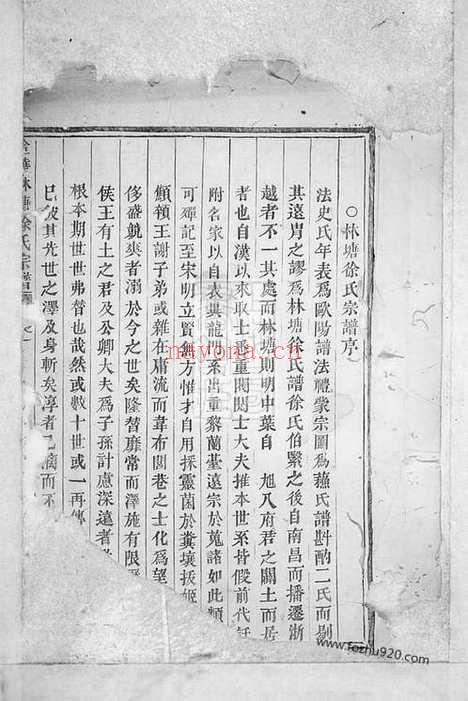 ○林塘徐氏宗譜序
法史氏年表爲歐陽譜法禮蒙宗圖爲蘓氏譜斟酌二氏而剔
其遠冑之謬爲林塘徐氏譜徐氏伯繄之後自南昌而播遷浙
越者不一其處而林塘則明中葉自 旭八府君之闢土而居
者也自漢以來取士爲重閥閱士大夫推本世系皆假前代
附名家以自表與龍門系出重黎蘭臺遠宗於蒐諸如此類
可殫記至宋明立賢無方惟才自用採靈菌於糞壤拔姬
顦顇王謝子弟或雜在庸流而韋布閭巷之士化爲望
侈盛競爽者溺於今之世矣隆替靡常而澤施有限
侯王有土之君及公卿大夫爲子孫計慮深遠者
根本期世世弗替也哉然或數十世或一再傳
已及其先世之澤及身斬矣淳者 漓而不
金華林塘徐氏宗譜 卷之一
nayona.cn
www.fozhu920.com